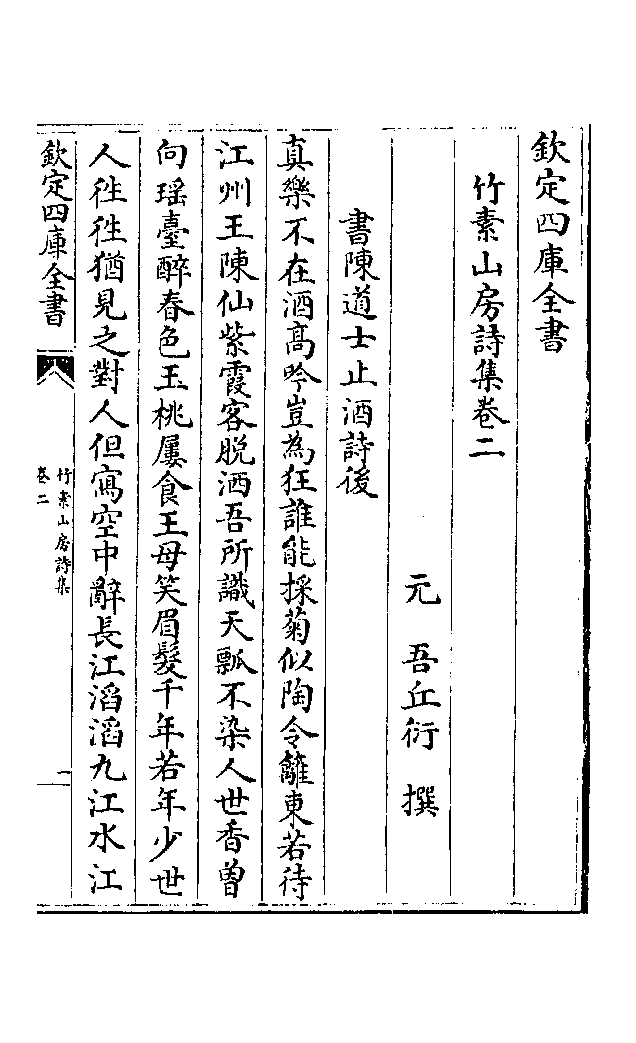 欽定四庫全書
竹素山房詩集卷二
元 吾丘衍 撰
書陳道士止酒詩後
真樂不在酒高吟豈為狂誰能採菊似陶令籬東若待
江州王陳仙紫霞客脱洒吾所識天瓢不染人世香曽
向瑶臺醉春色玉桃屢食王母笑眉髮千年若年少世
人徃徃猶見之對人但寫空中辭長江滔滔九江水江
欽定四庫全書
竹素山房詩集
卷二
一